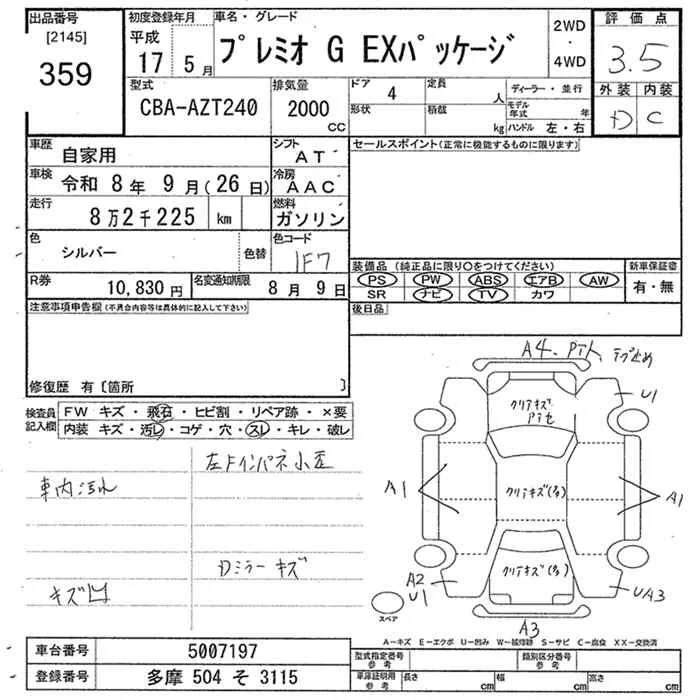 出品番号
[2145]
359
初度登録年月
平成
17 5月
車名・グレード
プレミオ G EXパッケージ
2WD
・
4WD
評価点
3.5
外装 内装
D C
型式
CBA-AZT240
排気量
2000
CC
ドア 4
定員 人
形状
積載 kg
ディーラー・並行
モデル年式 年
ハンドル 左・右
車歴 自家用
シフト AT
車検 令和 8年 9月(26日)
冷房 AAC
走行 8万2千225 km
燃料 ガソリン
色 シルバー 色替
色コード 1F7
R券 10,830円
名変通知期限 8月 9日
セールスポイント(正常に機能するものに限ります)
装備品 (純正品に限り○をつけてください)
PS PW ABS エアB AW
SR ナビ TV カワ
新車保証書
有・無
後日品
注意事項申告欄(不具合内容等は具体的に記入して下さい)
修復歴 有〔箇所 〕
検査員記入欄
FW キズ・飛石・ヒビ割・リペア跡・×要
内装 キズ・汚レ・コゲ・穴・スレ・キレ・破レ
車内汚れ
キズ凹
左Fインパネ小
Dミラーキズ
A4
U1
クリアキズ
A1
クリアキズ(多)
A1
クリアキズ(多)
A2
U1
UA3
A3
スペア
A-キズ E-エクボ U-凹み W-補修跡 S-サビ C-腐食 XX-交換済
車台番号 5007197
登録番号 多摩 504 そ 3115
型式指定番号 参考
類別区分番号 参考
車庫証明用 参考
長さ cm
幅 cm
高さ cm